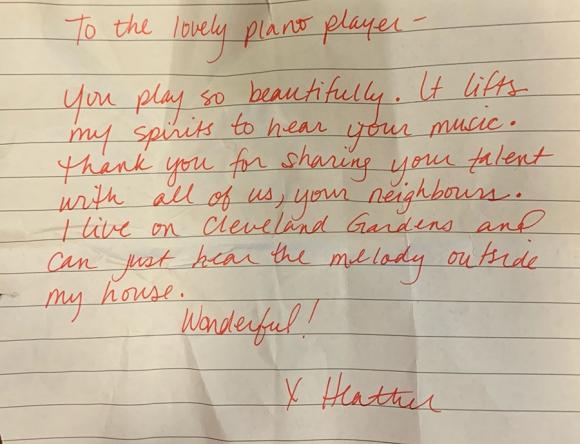 To the lovely piano player -
You play so beautifully. It lifts
my spirits to hear your music.
Thank you for sharing your talent
with all of us, your neighbours.
I live on Cleveland Gardens and
can just hear the melody outside
my house.
Wonderful!
X Heather